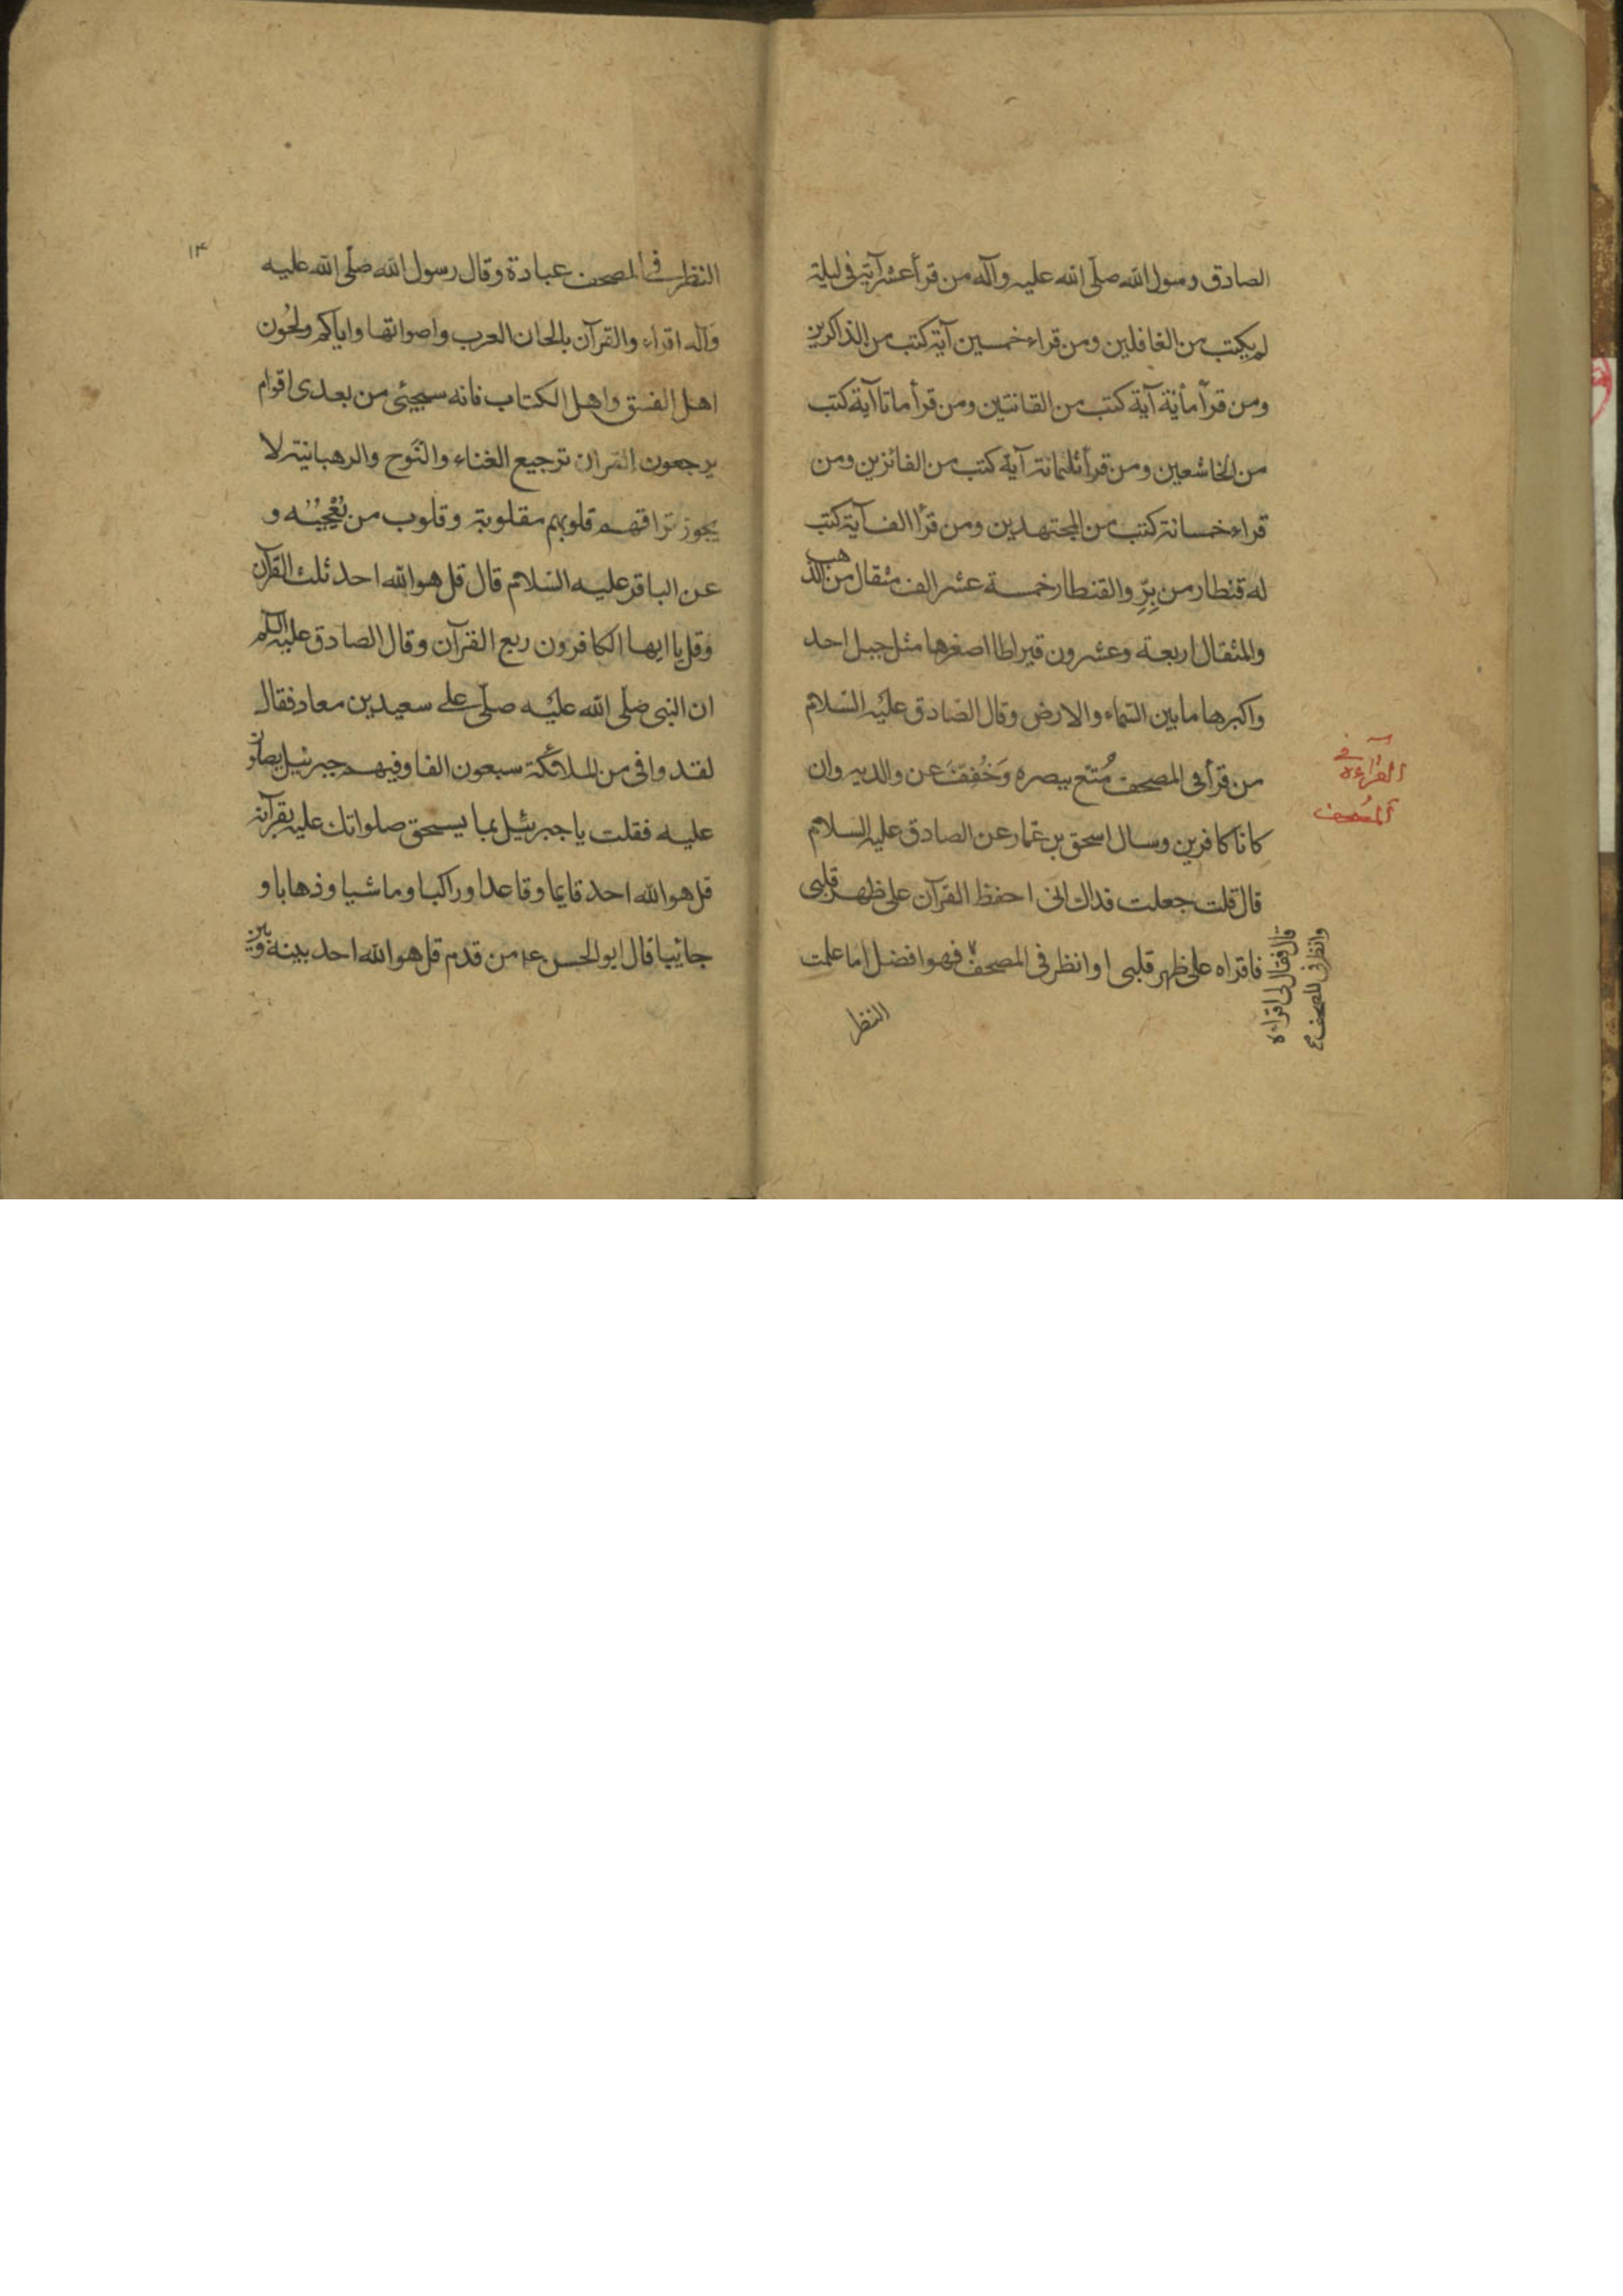 الصادق رسول الله صلّى الله عليه وآله من قرأ عشر آية في ليلة
لم يكتب من الغافلين ومن قراء خمسين آية كتب من الذاكرين
ومن قرأ مأية آية كتب من القانتين ومن قرأ ماتا آية كتب
من الخاشعين ومن قرأ ثلثمائة آية كتب من الفائزين ومن
قراء خمسائة كتب من المجتهدين ومن قرأ الف آية كتب
له قنطار من بِرّ والقنطار خمسة عشر الف مثقال من الذهب
والمثقال اربعة وعشرون قيراطا اصغرها مثل جبل احد
واكبرها ما بين السماء والارض وقال الصادق عليه السّلام
من قرأ في المصحف مُتّع ببصره وَخُفِفَ عن والديه وان
كانا كافرين وسال اسحق بن عمار عن الصادق عليه السلام
قال قلت جعلت فداك اني احفظ القرآن على ظهر قلبي
فاقراه على ظهر قلبي او انظر في المصحف فهو افضل اما علمت
النظر
قال فقال لي اقراءه
وانظر في المصحف
القراءة في
المصحف
١٣
النظر في المصحف عبادة وقال رسول الله صلّى الله عليه
وآله اقراء والقرآن بالحان العرب واصواتها واياكم ولحُون
اهل الفسق واهل الكتاب فانه سيجيئ من بعدى اقوام
يرجعون القران ترجيع الغناء والنَوح والرهبانية لا
يجوز تراقيهم قلوبهم مقلوبة وقلوب من و
عن الباقر عليه السّلام قال قل هو الله احد ثلث القرآن
وقل يا ايها الكافرون ربع القرآن وقال الصادق عليه السلم
ان النبي صلّى الله عليه صلّى على سعيد بن معاد فقال
لقد وافى من الملائكة سبعون الفا وفيهم جبرئيل يصلون
عليه فقلت يا جبرئيل بما يسحق صلواتك عليه بقرآنه
قل هو الله احد قايما وقاعدا وراكبا وماشيا وذهابا و
جائيا قال ابو الحسن ع من قدم قل هو الله احد بينه وبين